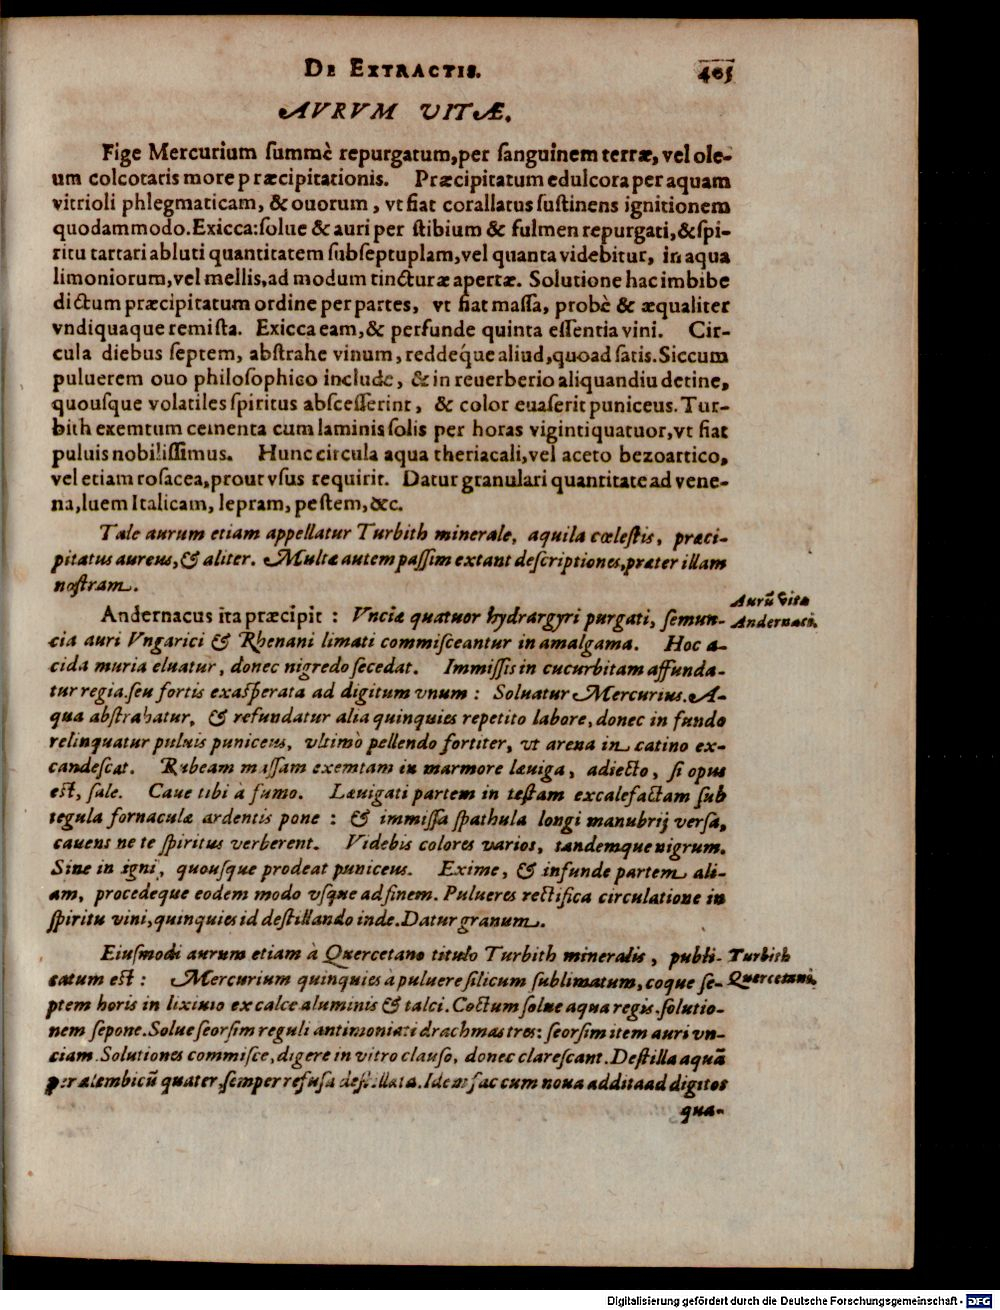 De Extractis. 405
AVRVM VITÆ.
Fige Mercurium summè repurgatum, per sanguinem terræ, vel ole-
um colcotaris more præcipitationis. Præcipitatum edulcora per aquam
vitrioli phlegmaticam, & ouorum, vt fiat corallatus sustinens ignitionem
quodammodo. Exicca: solue & auri per stibium & fulmen repurgati, & spi-
ritu tartari abluti quantitatem subseptuplam, vel quanta videbitur, in aqua
limoniorum, vel mellis, ad modum tincturæ apertæ. Solutione hac imbibe
dictum præcipitatum ordine per partes, vt fiat massa, probè & æqualiter
vndiquaque remista. Exicca eam, & perfunde quinta essentia vini. Cir-
cula diebus septem, abstrahe vinum, reddeq́ue aliud, quoad satis. Siccum
puluerem ouo philosophico include, & in reuerberio aliquandiu detine,
quousque volatiles spiritus abscesserint, & color euaserit puniceus. Tur-
bith exemtum cementa cum laminis solis per horas vigintiquatuor, vt fiat
puluis nobilissimus. Hunc circula aqua theriacali, vel aceto bezoartico,
vel etiam rosacea, prout vsus requirit. Datur granulari quantitate ad vene-
na, luem Italicam, lepram, pestem, &c.
Tale aurum etiam appellatur Turbith minerale, aquila cœlestis, præci-
pitatus aureus, & aliter. Multæ autem passim extant descriptiones, præter illam
nostram.
Aurũ vitæ
Andernaci.
Andernacus ita præcipit: Vnciæ quatuor hydrargyri purgati, semun-
cia auri Vngarici & Rhenani limati commisceantur in amalgama. Hoc a-
cida muria eluatur, donec nigredo secedat. Immissis in cucurbitam affunda-
tur regia, seu fortis exasperata ad digitum vnum: Soluatur Mercurius. A-
qua abstrahatur, & refundatur alia quinquies repetito labore, donec in fundo
relinquatur puluis puniceus, vltimò pellendo fortiter, vt arena in catino ex-
candescat. Rubeam massam exemtam in marmore læuiga, adiecto, si opus
est, sale. Caue tibi à fumo. Læuigati partem in testam excalefactam sub
tegula fornaculæ ardentis pone: & immissa spathula longi manubrij versa,
cauens ne te spiritus verberent. Videbis colores varios, tandemque nigrum.
Sine in igni, quousque prodeat puniceus. Exime, & infunde partem ali-
am, procedeque eodem modo vsque ad finem. Pulueres rectifica circulatione in
spiritu vini, quinquies id destillando inde. Datur granum.
Turbith
Quercetani.
Eiusmodi aurum etiam à Quercetano titulo Turbith mineralis, publi-
catum est: Mercurium quinquies à puluere silicum sublimatum, coque se-
ptem horis in lixiuio ex calce aluminis & talci. Coctum solue aqua regis. solutio-
nem sepone. Solue seorsim reguli antimoniati drachmas tres: seorsim item auri vn-
ciam. Solutiones commisce, digere in vitro clauso, donec clarescant. Destilla aquã
per alembicũ quater, semper refusa destillata. Idem fac cum noua addita ad digitos
qua-
Digitalisierung gefördert durch die Deutsche Forschungsgemeinschaft - DFG